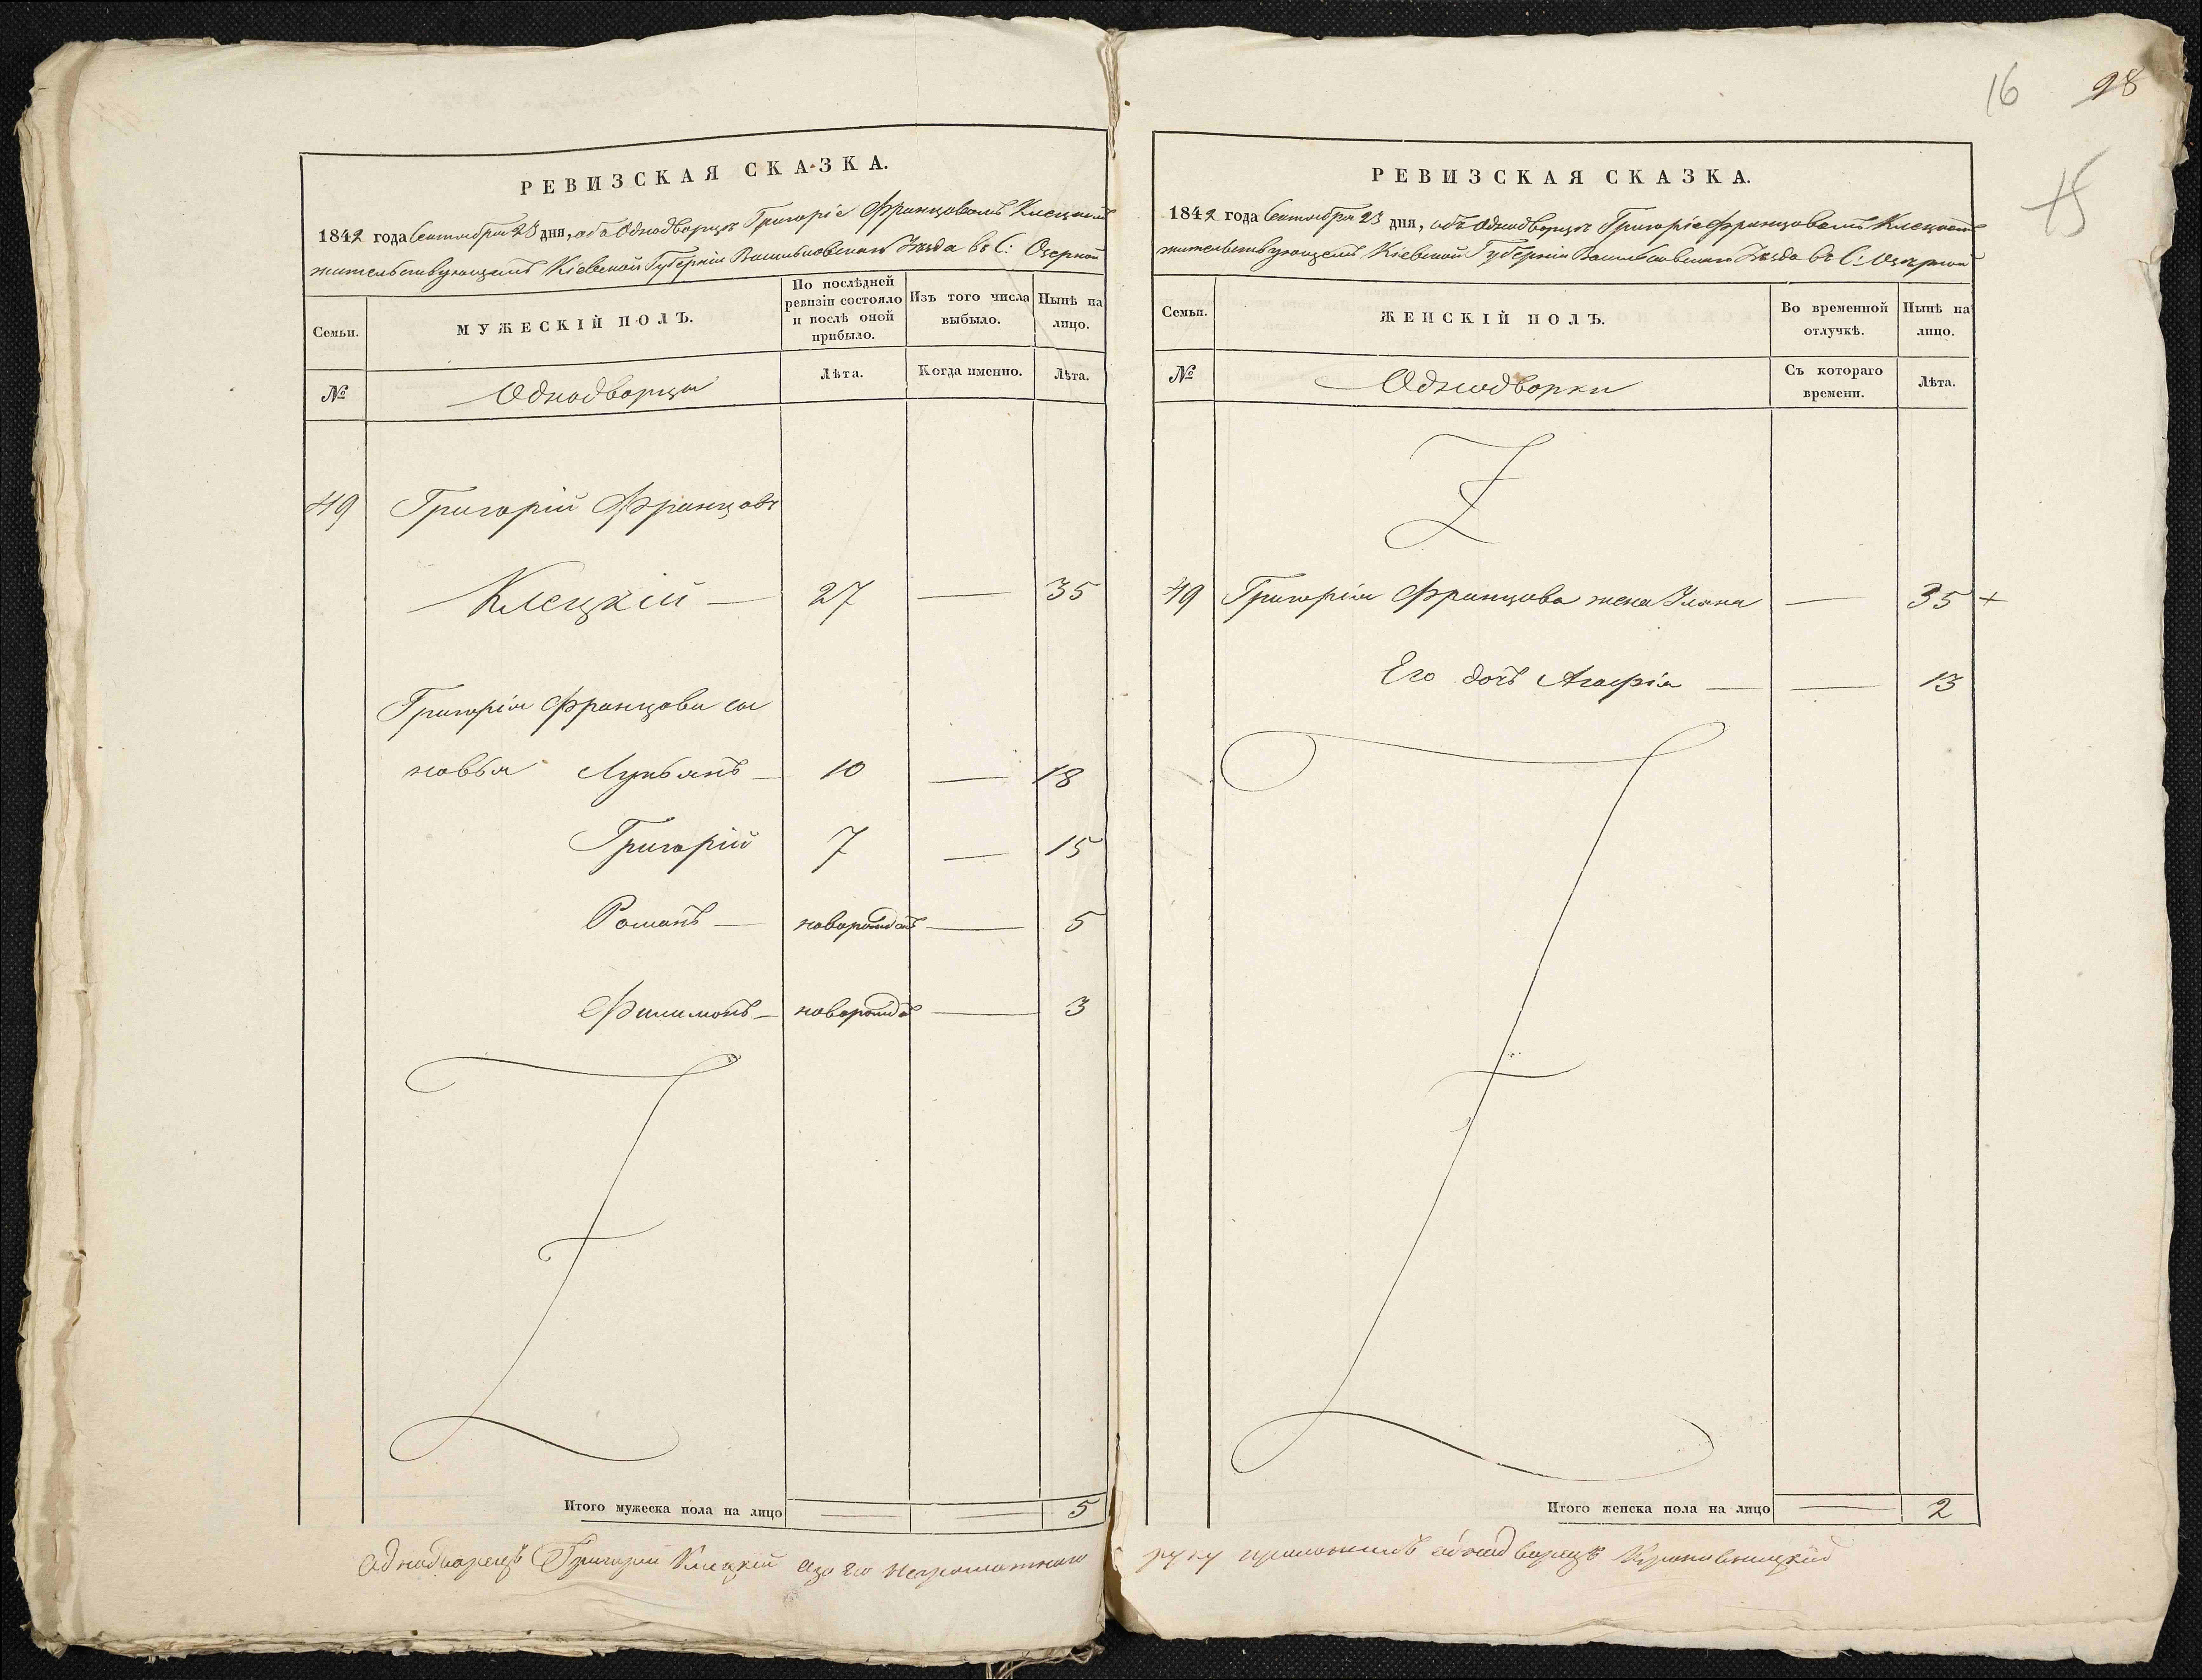 16 98
15
РЕВИЗСКАЯ СКАЗКА.
1842 года Сентября 23 дня, объ Однодворцѣ Григоріе Францовомъ Клецкомъ
жительствующемъ Кіевской Губерніи Васильковскаго Уѣзда въ С: Озерной
Семьи.
МУЖЕСКІЙ ПОЛЪ.
По послѣдней ревизіи состояло и послѣ оной прибыло.
Изъ того числа выбыло.
Нынѣ на лицо.
№
Однодворцы
Лѣта.
Когда именно.
Лѣта.
49 Григорій Францовъ
Клецкій — 27 — 35
Григорія Францова сы
новья Лукьянъ — 10 — 18
Григорій 7 — 15
Романъ — новорожден — 5
Филимонъ — новорожд — 3
Итого мужеска пола на лицо — — 5
однодворецъ Григорий Клецкий а за его неграмотнаго
РЕВИЗСКАЯ СКАЗКА.
1842 года Сентября 23 дня, объ Однодворцѣ Григоріе Францовомъ Клецкомъ
жительствующемъ Кіевской Губерніи Васильковскаго Уѣзда въ С: Озерной
Семьи.
ЖЕНСКІЙ ПОЛЪ.
Во временной отлучкѣ.
Нынѣ на лицо.
№
Однодворки
Съ котораго времени.
Лѣта.
49 Григорія Францова жена Уляна — 35 +
Его дочь Агафія — — 13
Итого женска пола на лицо — 2
руку приложилъ однодворецъ Кропивницкий